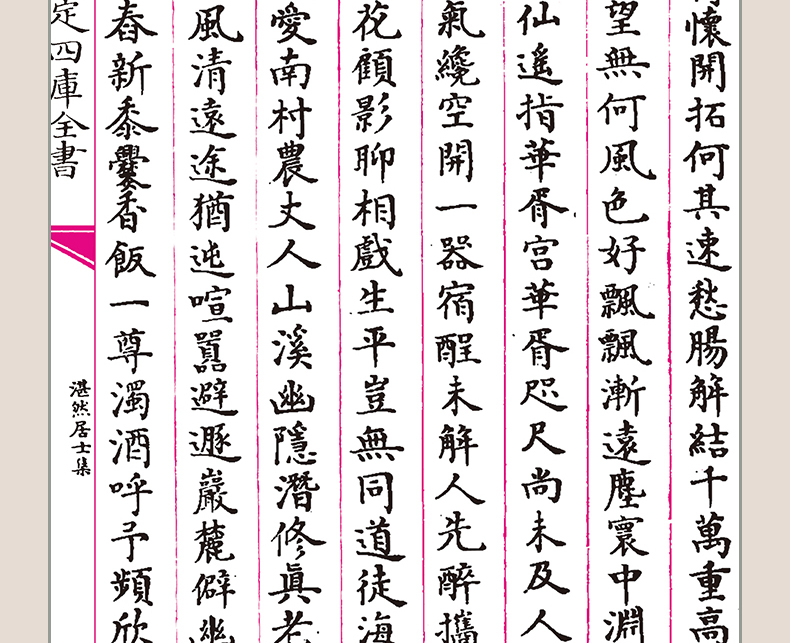 懷開拓何其速愁腸解結千萬重高
望無何風色好飄飄漸遠塵寰中淵
仙遥指華胥宮華胥咫尺尚未及人
氣纔空開一器宿酲未解人先醉攜
花顧影聊相戲生平豈無同道徒海
愛南村農丈人山溪幽隱潛修眞老
風清遠途猶迍喧囂避遯巖麓僻幽
舂新黍爨香飯一尊濁酒呼予頻欣
定四庫全書
湛然居士集